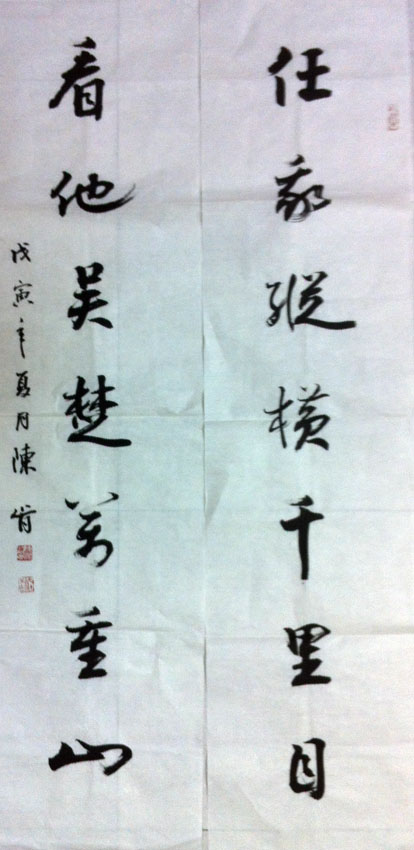 任我縱橫千里目
看他吴楚万重山
戊寅年夏月陳肯